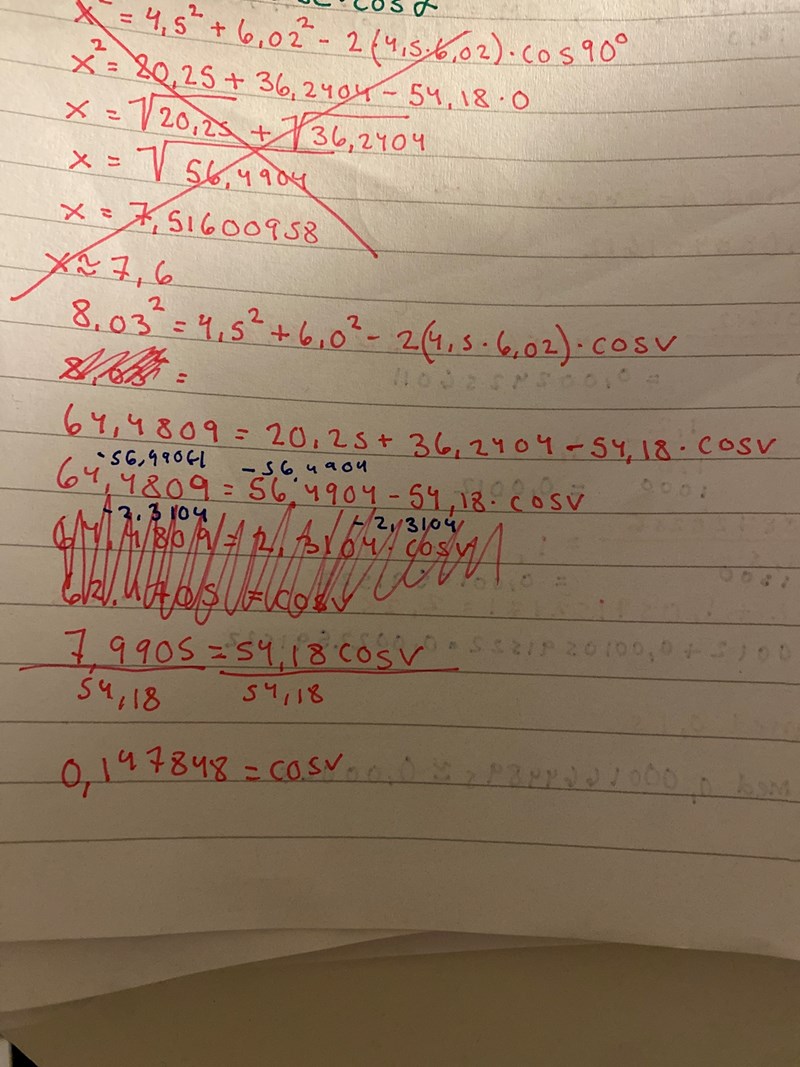 · cos α
x² = 4,5² + 6,02² - 2(4,5·6,02)·cos90°
x² = 20,25 + 36,2404 - 54,18·0
x = √20,25 + √36,2404
x = √56,4904
x = 7,51600958
x ≈ 7,6
8,03² = 4,5² + 6,0² - 2(4,5·6,02)·cosv
=
64,4809 = 20,25 + 36,2404 - 54,18·cosv
-56,4904 -56,4904
64,4809 = 56,4904 - 54,18·cosv
-2,3104 -2,3104
64,4809 = 2,3104·cosv
= cosv
7,9905 = 54,18cosv
54,18 54,18
0,147848 = cosv